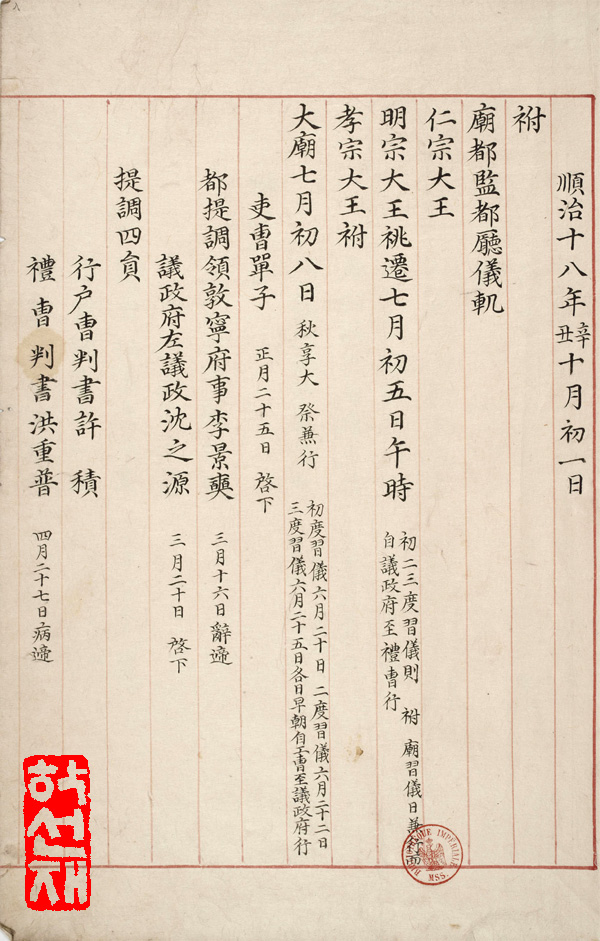 順治十八年辛丑十月初一日
祔
廟都監都廳儀軌
仁宗大王
明宗大王祧遷七月初五日午時 初二三度習儀則 祔 廟習儀日兼行而
自議政府至禮曹行
孝宗大王祔
大廟七月初八日 秋享大 祭兼行 初度習儀六月二十日 二度習儀六月二十二日
三度習儀六月二十五日各日早朝自工曹至議政府行
吏曹單子 正月二十五日 啓下
都提調領敦寧府事李景奭 三月十六日辭遞
議政府左議政沈之源 三月二十日 啓下
提調四員
行戶曹判書許 積
禮曹判書洪重普 四月二十七日病遞
하선재
IMPERIALE
MSS.